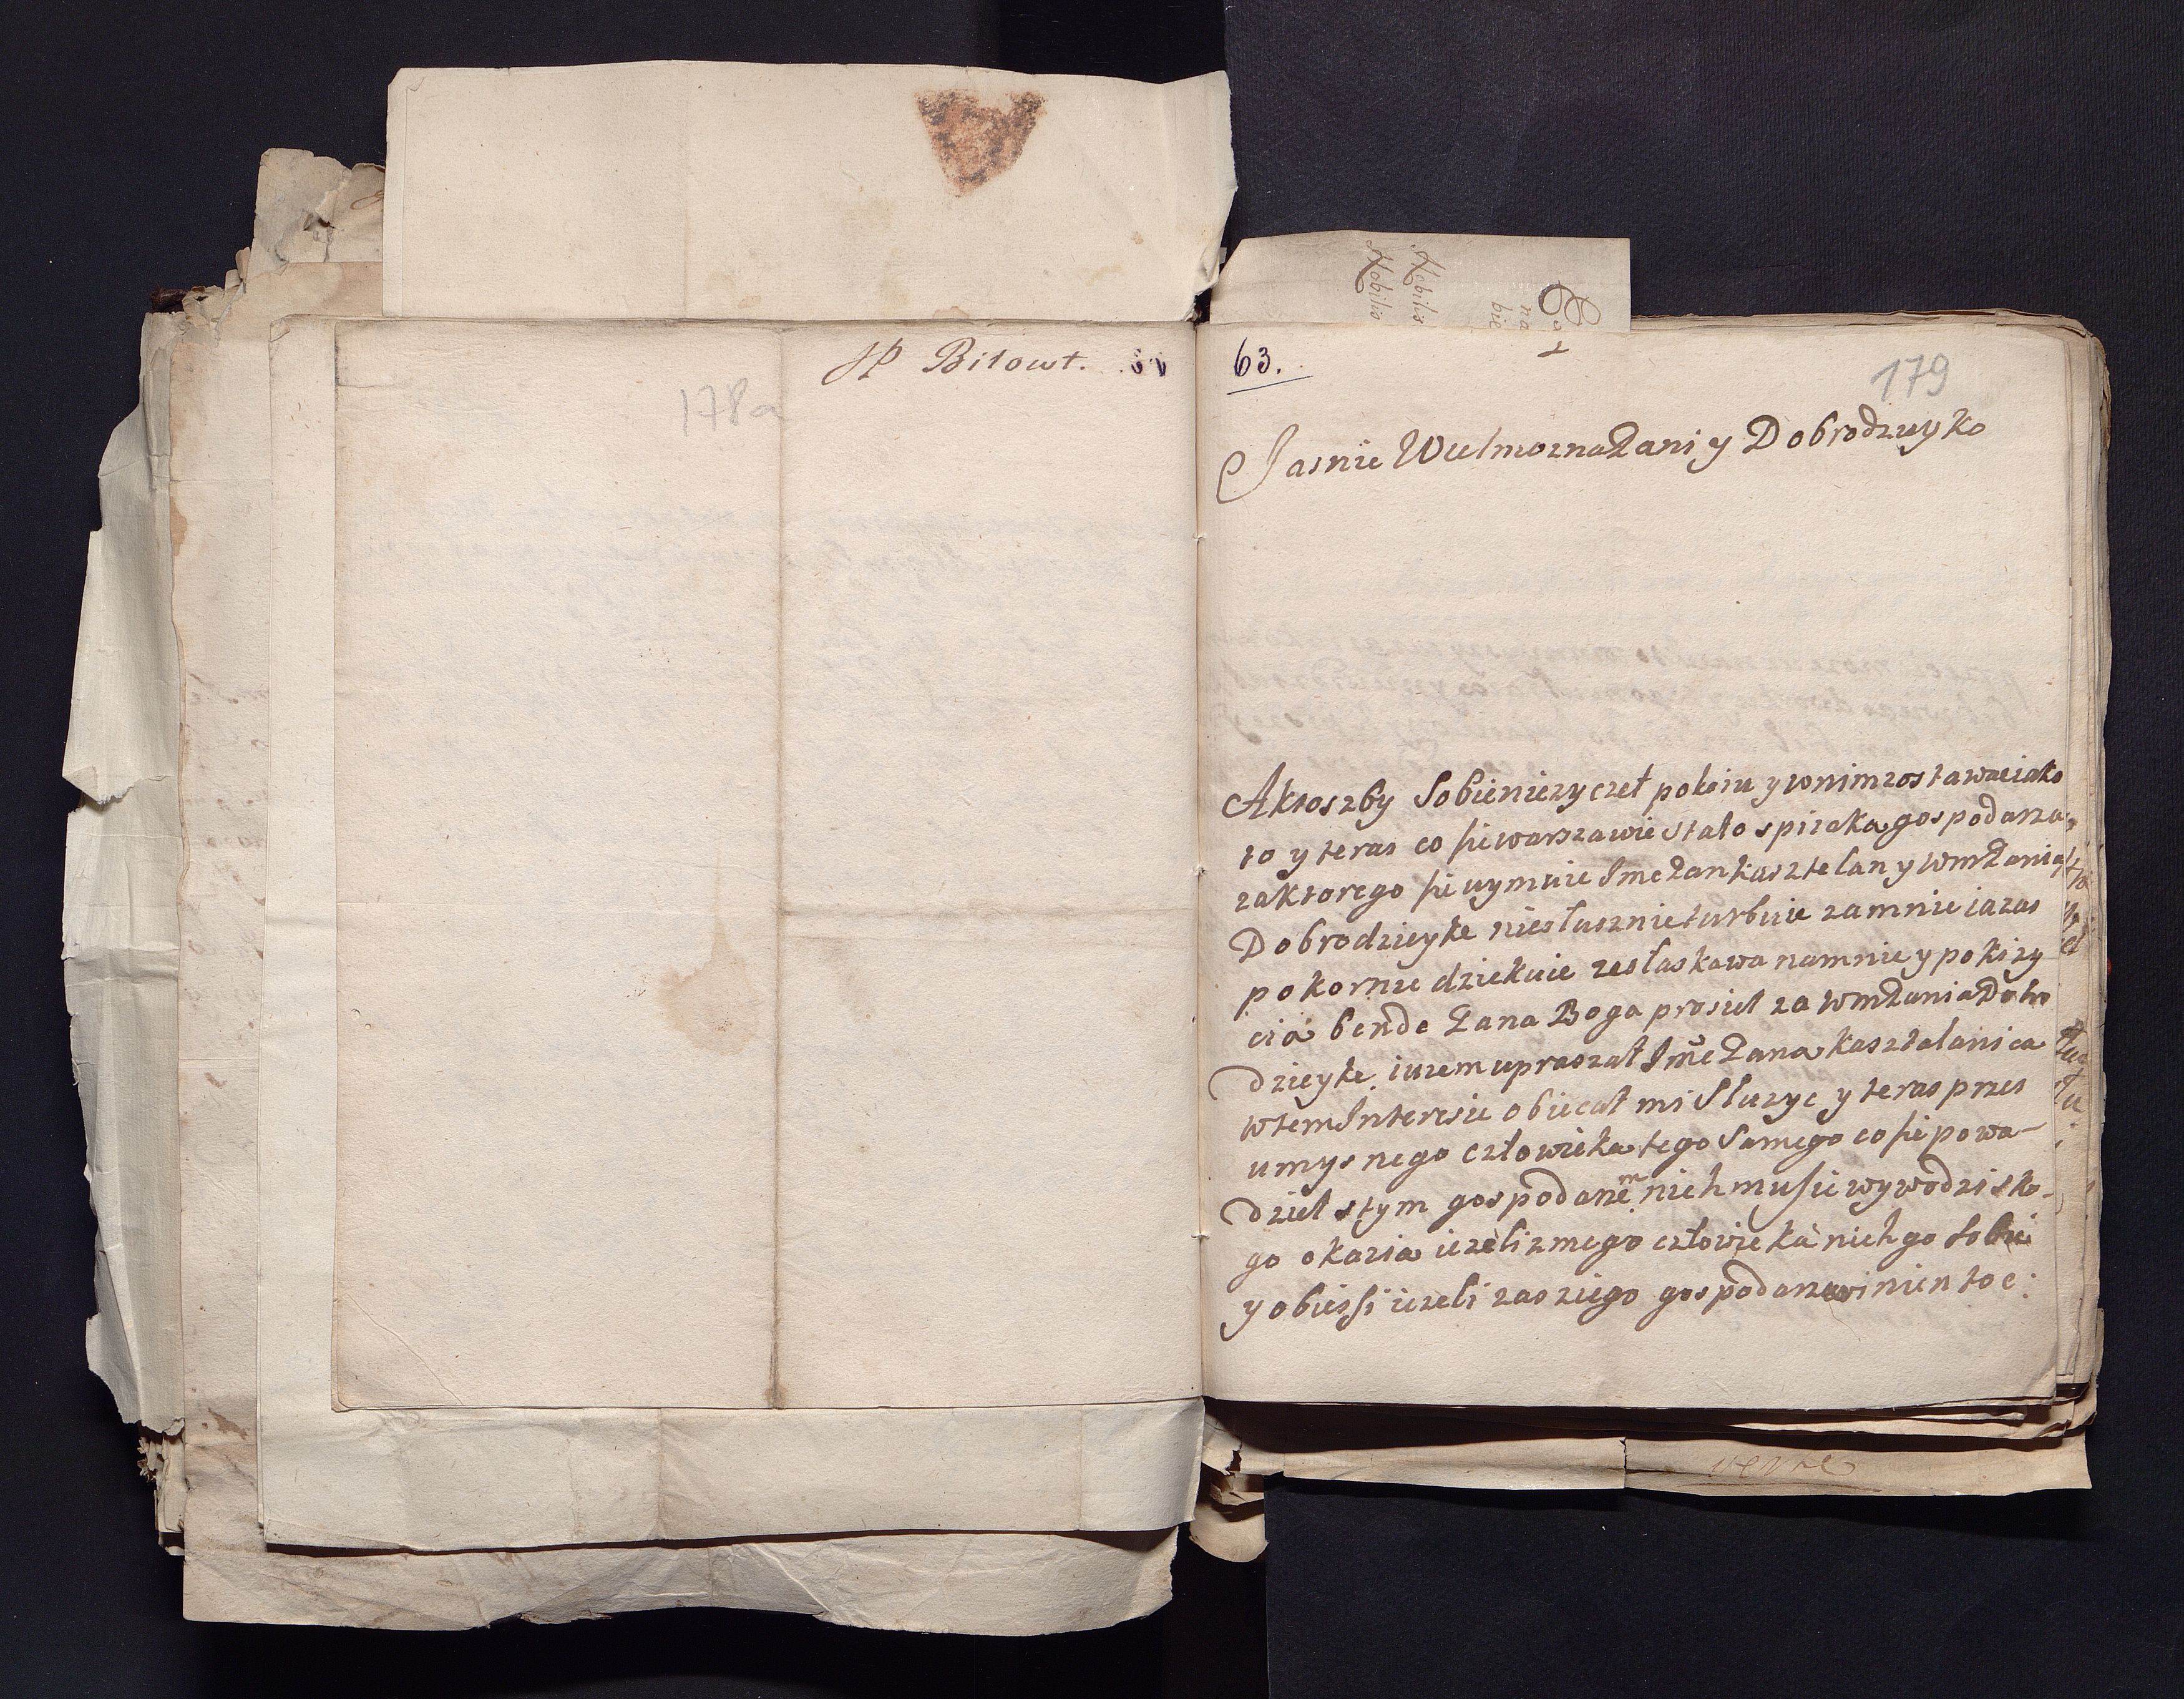 JP Bitowt.
178a
63.
179
Jasnie Wielmozna Pani y Dobrodzieyko
Aktoszby Sobie niezyczeł pokoiu y wnim zostawac iako
to y teras co sie warszawie stało s piiaka gospodarza
zaktorego sie uymuie Jmc Pan kasztelan y wm Pania
Dobrodzieyke niesłusznie turbuie zamnie ia zas
pokornie dziekuie zes łaskawa namnie y poki zy
cia bende Pana Boga prosieł za wm Pania Dobro
dzieyke iuzem upraszał Jmc Pana kasztalanica
wtem Interesie obiecał mi Sluzyc y teras przes
umysnego człowieka tego Samego co sie powa-
dzieł stym gospodarzem niech mu sie wywodzi sko-
go okazia iezeli zmego człowieka niech go Sobie
y obiessi iezeli zas ziego gospodarz winien to c:
Nobilis
Nobilis
bie
na